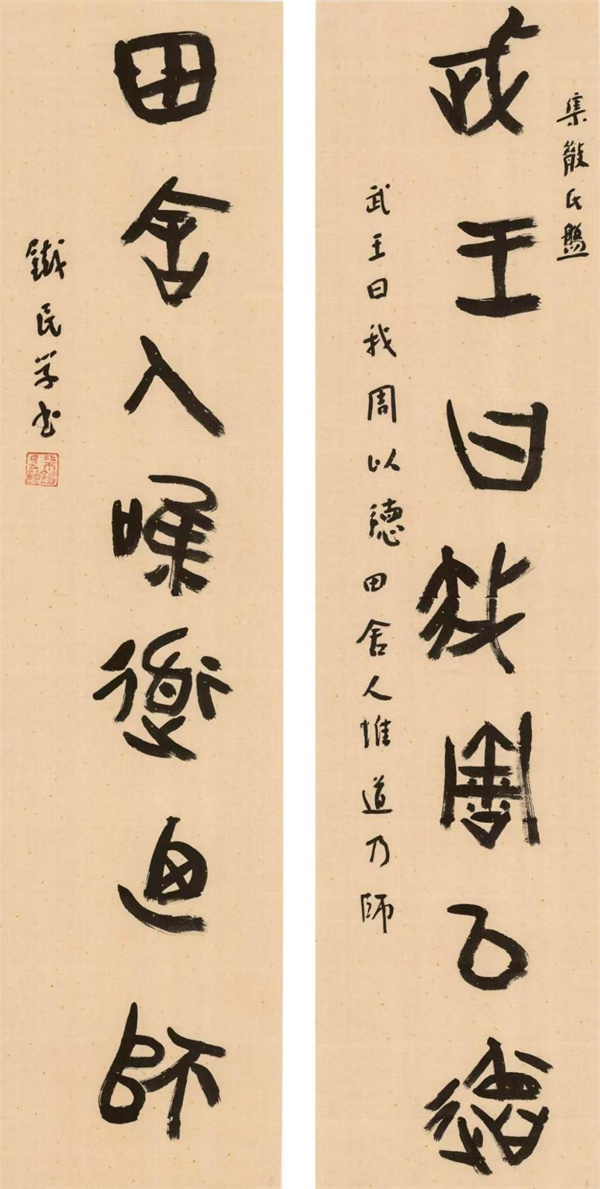 集散氏盤
武王曰我周以德
武王曰我周以德田舍人惟道乃師
田舍人惟道乃師
鐵民学书